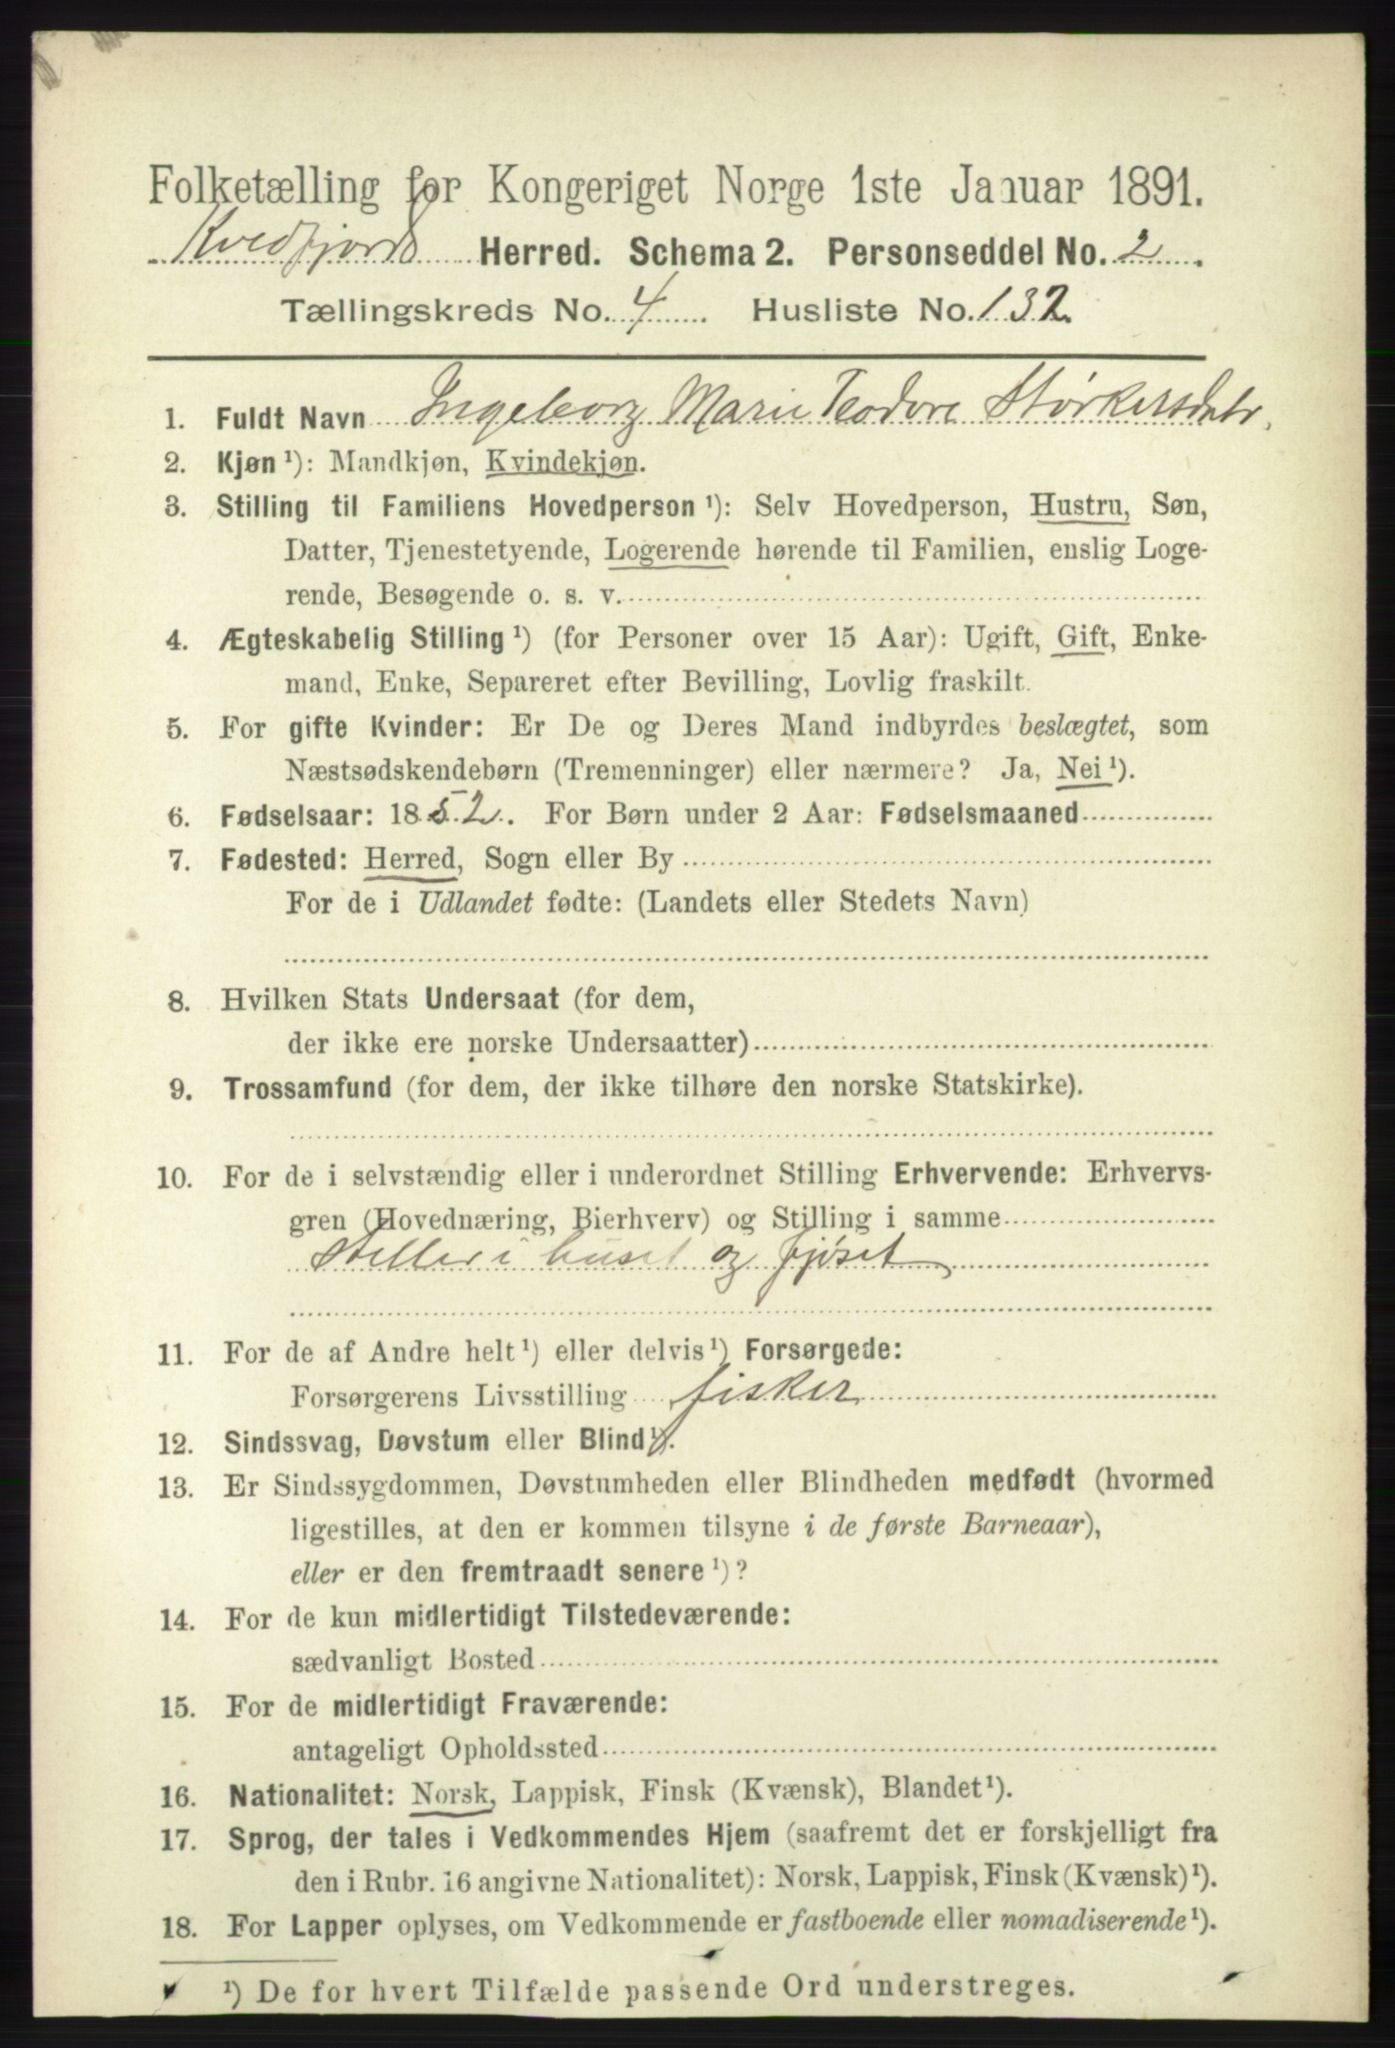 Folketælling for Kongeriget Norge 1ste Januar 1891.
Kvedfjord Herred. Schema 2. Personseddel No. 2.
Tællingskreds No. 4 Husliste No. 132.
1. Fuldt Navn Ingeborg Marie Teodore Størkersdatr,
2. Kjøn ¹): Mandkjøn, Kvindekjøn.
3. Stilling til Familiens Hovedperson ¹): Selv Hovedperson, Hustru, Søn,
Datter, Tjenestetyende, Logerende hørende til Familien, enslig Loge-
rende, Besøgende o. s. v.
4. Ægteskabelig Stilling ¹) (for Personer over 15 Aar): Ugift, Gift, Enke-
mand, Enke, Separeret efter Bevilling, Lovlig fraskilt.
5. For gifte Kvinder: Er De og Deres Mand indbyrdes beslægtet, som
Næstsødskendebørn (Tremenninger) eller nærmere? Ja, Nei ¹).
6. Fødselsaar: 1852. For Børn under 2 Aar: Fødselsmaaned
7. Fødested: Herred, Sogn eller By
For de i Udlandet fødte: (Landets eller Stedets Navn)
8. Hvilken Stats Undersaat (for dem,
der ikke ere norske Undersaatter)
9. Trossamfund (for dem, der ikke tilhøre den norske Statskirke).
10. For de i selvstændig eller i underordnet Stilling Erhvervende: Erhvervs-
gren (Hovednæring, Bierhverv) og Stilling i samme
steller i huset og fjøset
11. For de af Andre helt ¹) eller delvis ¹) Forsørgede:
Forsørgerens Livsstilling fisker
12. Sindssvag, Døvstum eller Blind ¹).
13. Er Sindssygdommen, Døvstumheden eller Blindheden medfødt (hvormed
ligestilles, at den er kommen tilsyne i de første Barneaar),
eller er den fremtraadt senere ¹)?
14. For de kun midlertidigt Tilstedeværende:
sædvanligt Bosted
15. For de midlertidigt Fraværende:
antageligt Opholdssted
16. Nationalitet: Norsk, Lappisk, Finsk (Kvænsk), Blandet ¹).
17. Sprog, der tales i Vedkommendes Hjem (saafremt det er forskjelligt fra
den i Rubr. 16 angivne Nationalitet): Norsk, Lappisk, Finsk (Kvænsk) ¹).
18. For Lapper oplyses, om Vedkommende er fastboende eller nomadiserende ¹).
¹) De for hvert Tilfælde passende Ord understreges.